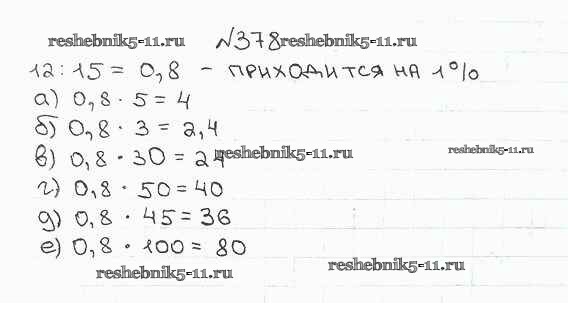 reshebnik5-11.ru №378 reshebnik5-11.ru
12:15 = 0,8 - ПРИХОДИТСЯ НА 1%
а) 0,8 · 5 = 4
б) 0,8 · 3 = 2,4
в) 0,8 · 30 = 24 reshebnik5-11.ru reshebnik5-11.ru
г) 0,8 · 50 = 40
д) 0,8 · 45 = 36
е) 0,8 · 100 = 80
reshebnik5-11.ru reshebnik5-11.ru